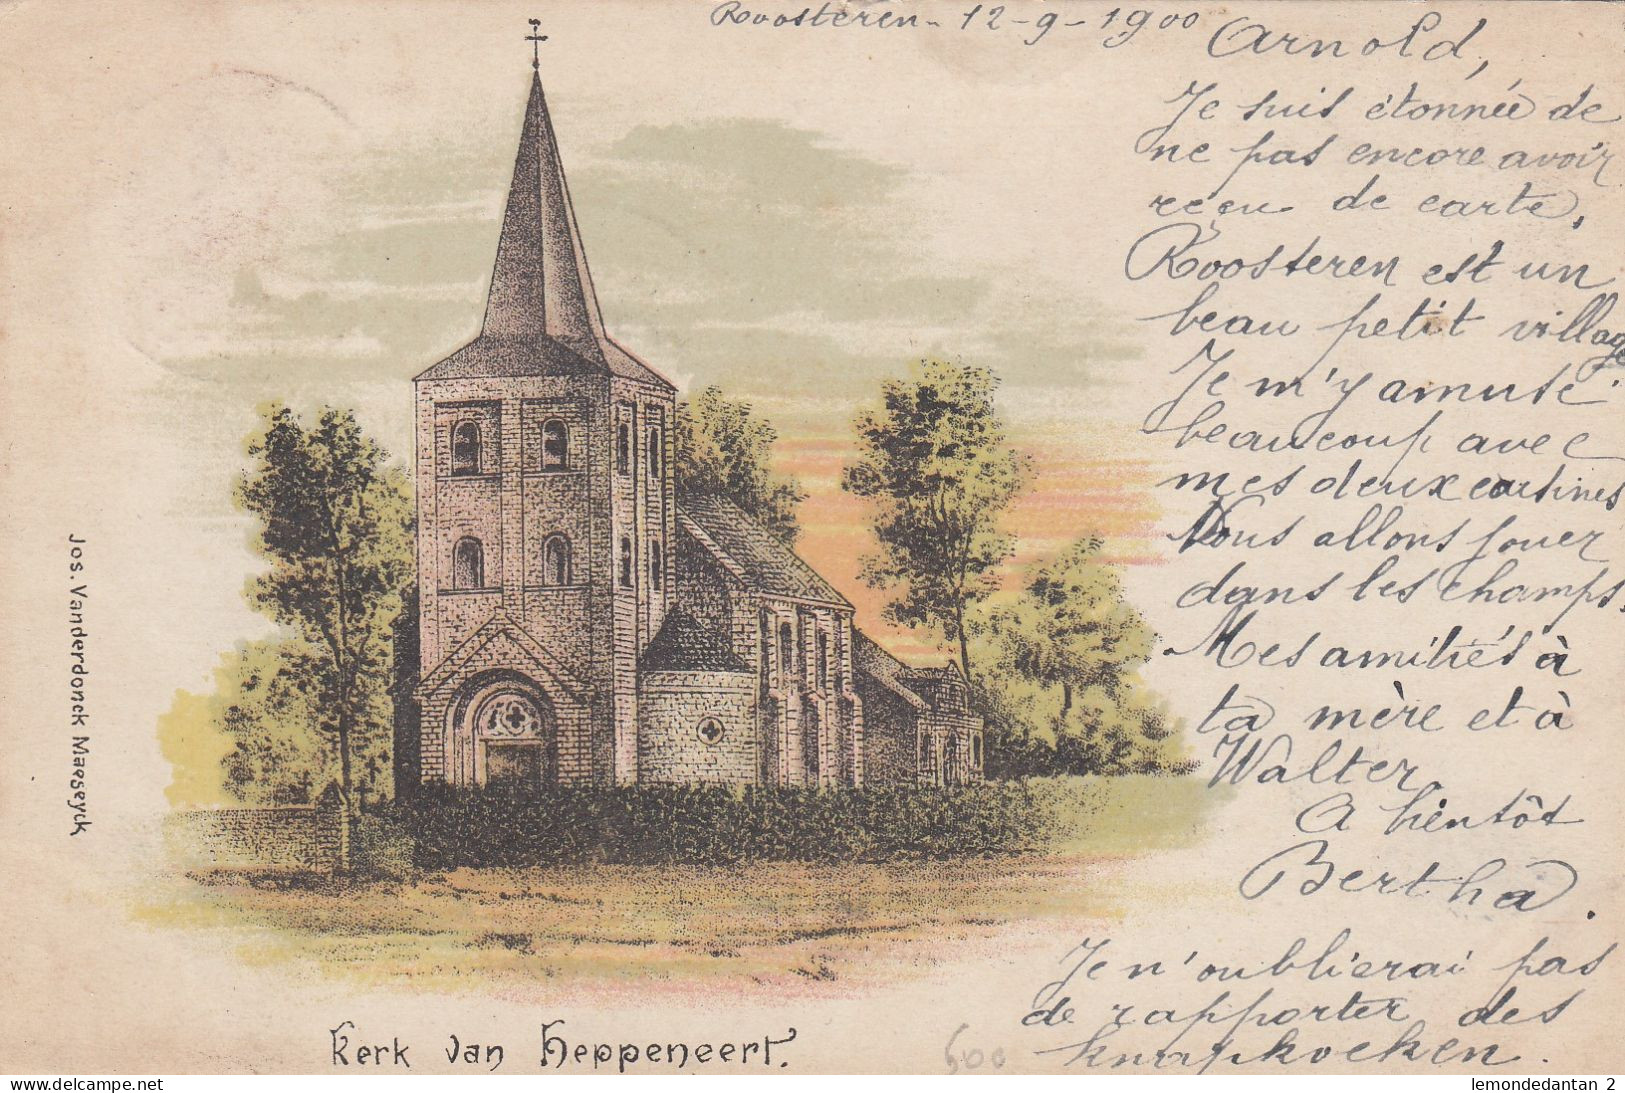 Roosteren - 12-9-1900
Arnold,
Je suis étonnée de
ne pas encore avoir
reçu de carte.
Roosteren est un
beau petit village
Je m'y amuse
beaucoup avec
mes deux cousines
Nous allons jouer
dans les champs.
Mes amitiés à
ta mère et à
Walter.
A bientôt
Bertha.
Je n'oublierai pas
de rapporter des
knapkoeken.
Jos. Vanderdonck Maeseyck
Kerk van Heppeneert.
600
lemondedantan 2